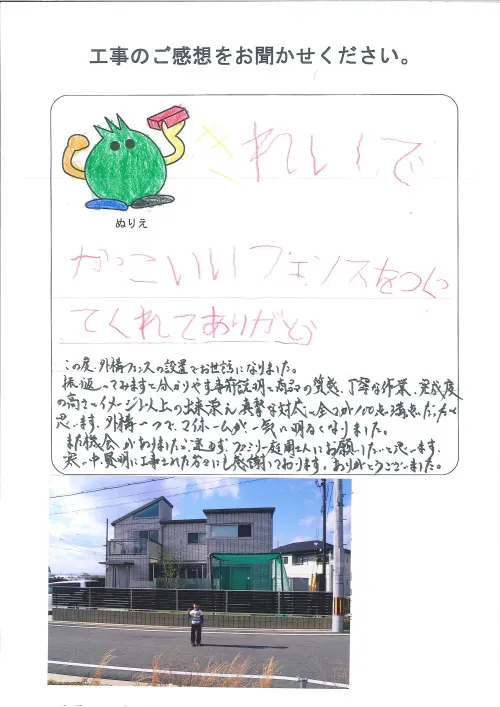 工事のご感想をお聞かせください。
きれいで
ぬりえ
かっこいいフェンスをつくっ
てくれてありがとう
この度、外構フェンスの設置でお世話になりました。
振り返ってみますと分かりやすい事前説明と商品の質感、丁寧な作業、完成度
の高さとイメージ以上の出来栄え、真摯な対応、全てが100点満点だったと
思います。外構一つで、マイホームが一気に明るくなりました。
また機会がありましたら、迷わず、ファミリー庭園さんにお願いしたいと思います。
寒い中、賢明に工事された方々にも感謝しております。ありがとうございました。